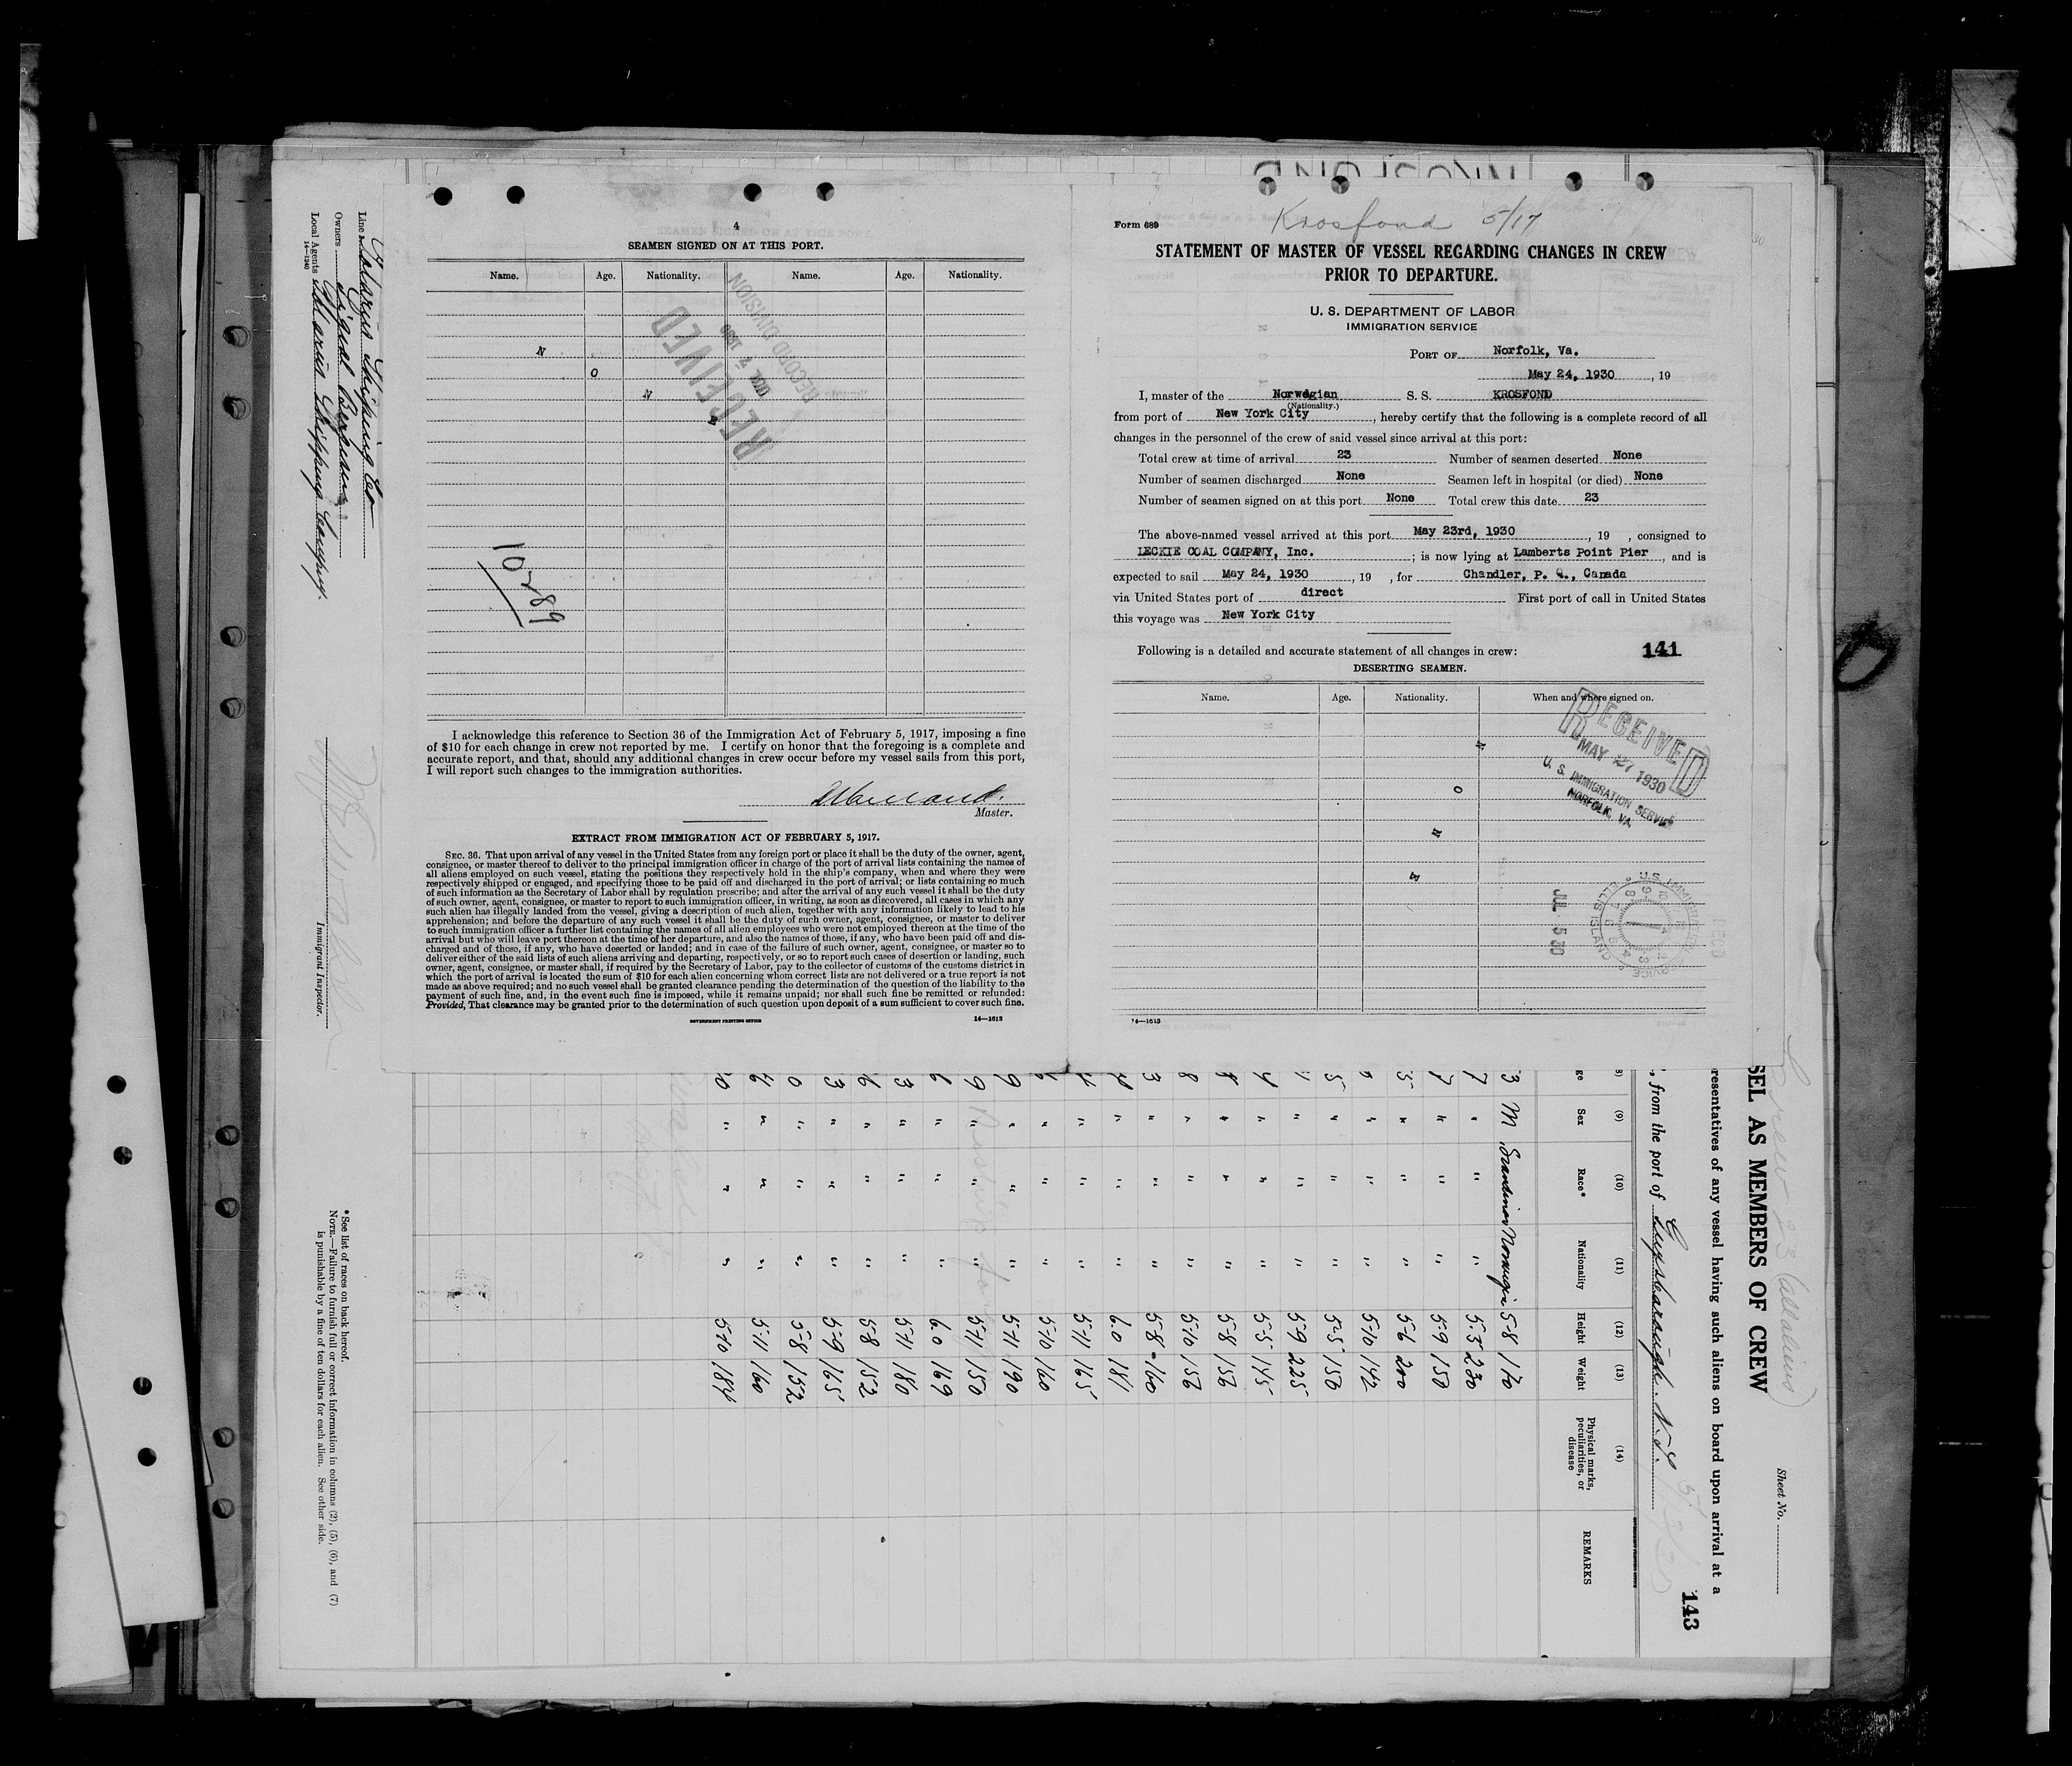 4
SEAMEN SIGNED ON AT THIS PORT.
Name. Age. Nationality. Name. Age. Nationality.
N
O
N
E
RECEIVED
1930
RECORD DIVISION
10289
I acknowledge this reference to Section 36 of the Immigration Act of February 5, 1917, imposing a fine
of $10 for each change in crew not reported by me. I certify on honor that the foregoing is a complete and
accurate report, and that, should any additional changes in crew occur before my vessel sails from this port,
I will report such changes to the immigration authorities.
Master.
EXTRACT FROM IMMIGRATION ACT OF FEBRUARY 5, 1917.
SEC. 36. That upon arrival of any vessel in the United States from any foreign port or place it shall be the duty of the owner, agent,
consignee, or master thereof to deliver to the principal immigration officer in charge of the port of arrival lists containing the names of
all aliens employed on such vessel, stating the positions they respectively hold in the ship's company, when and where they were
respectively shipped or engaged, and specifying those to be paid off and discharged in the port of arrival; or lists containing so much
of such information as the Secretary of Labor shall by regulation prescribe; and after the arrival of any such vessel it shall be the duty
of such owner, agent, consignee, or master to report to such immigration officer, in writing, as soon as discovered, all cases in which any
such alien has illegally landed from the vessel, giving a description of such alien, together with any information likely to lead to his
apprehension; and before the departure of any such vessel it shall be the duty of such owner, agent, consignee, or master to deliver
to such immigration officer a further list containing the names of all alien employees who were not employed thereon at the time of the
arrival but who will leave port thereon at the time of her departure, and also the names of those, if any, who have been paid off and dis-
charged and of those, if any, who have deserted or landed; and in case of the failure of such owner, agent, consignee, or master so to
deliver either of the said lists of such aliens arriving and departing, respectively, or so to report such cases of desertion or landing, such
owner, agent, consignee, or master shall, if required by the Secretary of Labor, pay to the collector of customs of the customs district in
which the port of arrival is located the sum of $10 for each alien concerning whom correct lists are not delivered or a true report is not
made as above required; and no such vessel shall be granted clearance pending the determination of the question of the liability to the
payment of such fine, and, in the event such fine is imposed, while it remains unpaid; nor shall such fine be remitted or refunded:
Provided, That clearance may be granted prior to the determination of such question upon deposit of a sum sufficient to cover such fine.
GOVERNMENT PRINTING OFFICE 14—1613
Krosfond 5/17
Form 689
STATEMENT OF MASTER OF VESSEL REGARDING CHANGES IN CREW
PRIOR TO DEPARTURE.
U. S. DEPARTMENT OF LABOR
IMMIGRATION SERVICE
PORT OF Norfolk, Va.
May 24, 1930, 19
I, master of the Norwegian S. S. KROSFOND
(Nationality.)
from port of New York City, hereby certify that the following is a complete record of all
changes in the personnel of the crew of said vessel since arrival at this port:
Total crew at time of arrival 23 Number of seamen deserted None
Number of seamen discharged None Seamen left in hospital (or died) None
Number of seamen signed on at this port None Total crew this date 23
The above-named vessel arrived at this port May 23rd, 1930, 19 , consigned to
LECKIE COAL COMPANY, Inc. ; is now lying at Lamberts Point Pier, and is
expected to sail May 24, 1930, 19 , for Chandler, P. Q., Canada
via United States port of direct First port of call in United States
this voyage was New York City
Following is a detailed and accurate statement of all changes in crew: 141
DESERTING SEAMEN.
Name. Age. Nationality. When and where signed on.
N
O
N
E
RECEIVED
MAY 27 1930
U. S. IMMIGRATION SERVICE
NORFOLK, VA.
JUL 5 30
U.S. IMMIGRATION SERVICE
ELLIS ISLAND
14—1613
Line
Owners
Local Agents
Shipping Company.
14—1240
Immigrant Inspector.
* See list of races on back hereof.
NOTE.—Failure to furnish full or correct information in columns (2), (5), (6), and (7)
is punishable by a fine of ten dollars for each alien. See other side.
Sheet No.
Crew 23 (all aliens)
SEL AS MEMBERS OF CREW
resentatives of any vessel having such aliens on board upon arrival at a
143
, from the port of
(9) (10) (11) (12) (13) (14)
Sex Race* Nationality Height Weight Physical marks, peculiarities, or disease REMARKS
3 M 5 8 170
7 " " " 5.5 230
7 " " " 5 9 150
5 " " " 5 6 200
" " " 5 10 142
5 " " " 5.5 150
" " " 5 9 225
4 " " " 5.5 145
" " " 5 8 156
8 " " " 5 10 156
3 " " " 5 8 160
" " " 6.0 181
" " " 5 11 165
" " " 5 10 160
9 " " " 5 11 190
9 " " " 5 11 150
6 " " " 6.0 169
3 " " " 5 11 180
6 " " " 5 8 152
3 " " " 5 9 165
0 " " " 5 8 152
6 " " " 5 11 160
0 " " " 5 10 184